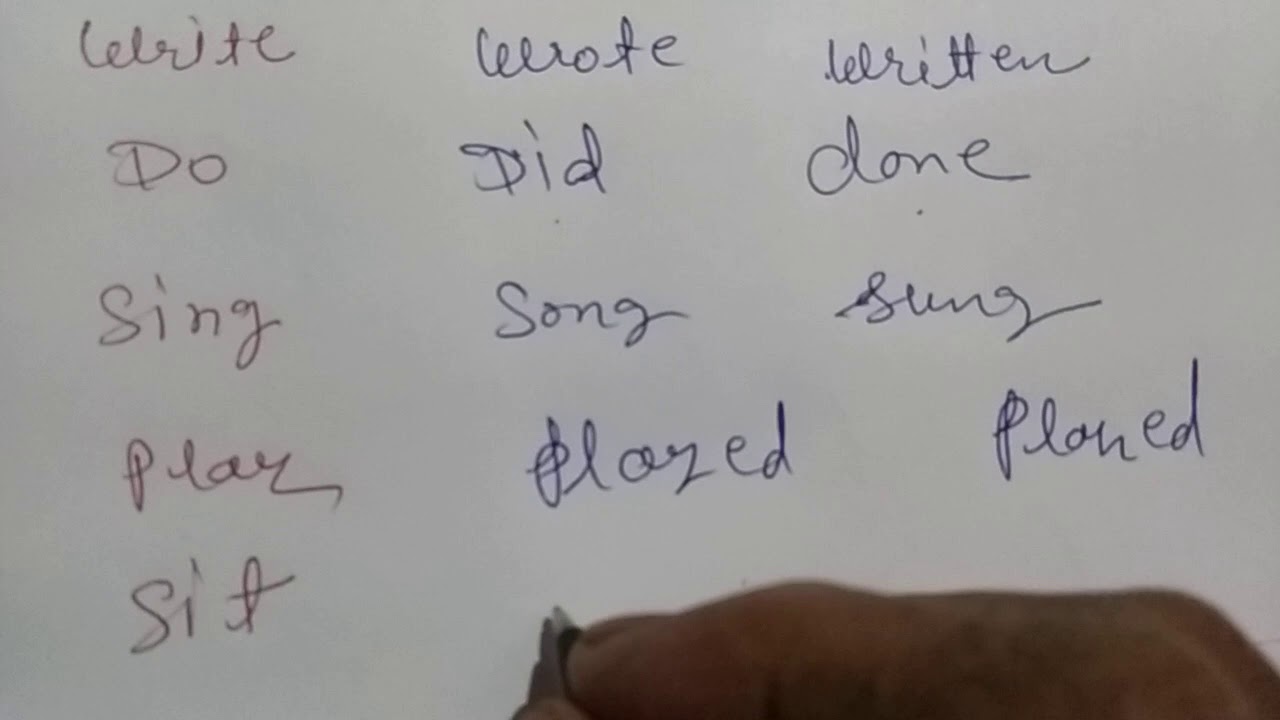 Write Wrote Written
Do Did done
Sing Song Sung
Play Played Played
Sit